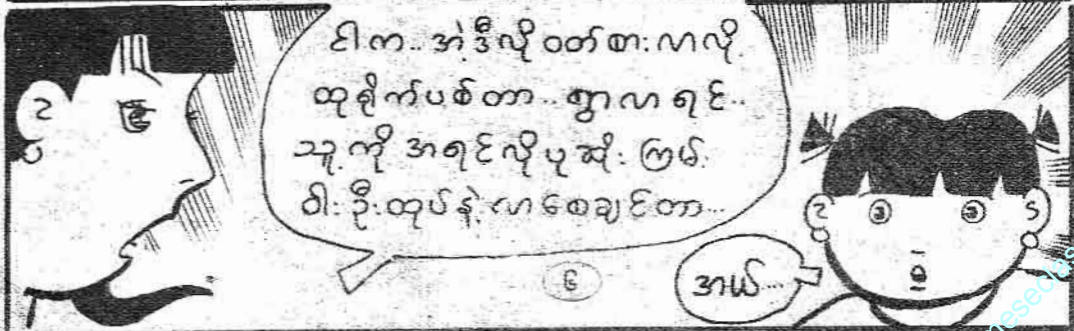 ငါက.. အဲ့ဒီလို ဝတ်စားလာလို့
ထုရိုက်ပစ်တာ.. ရွာလာရင်..
သူ့ကို အရင်လို ပုဆိုး ကြမ်း
ဝါး ဦးထုပ်နဲ့ လာစေချင်တာ...
အယ်....
၆